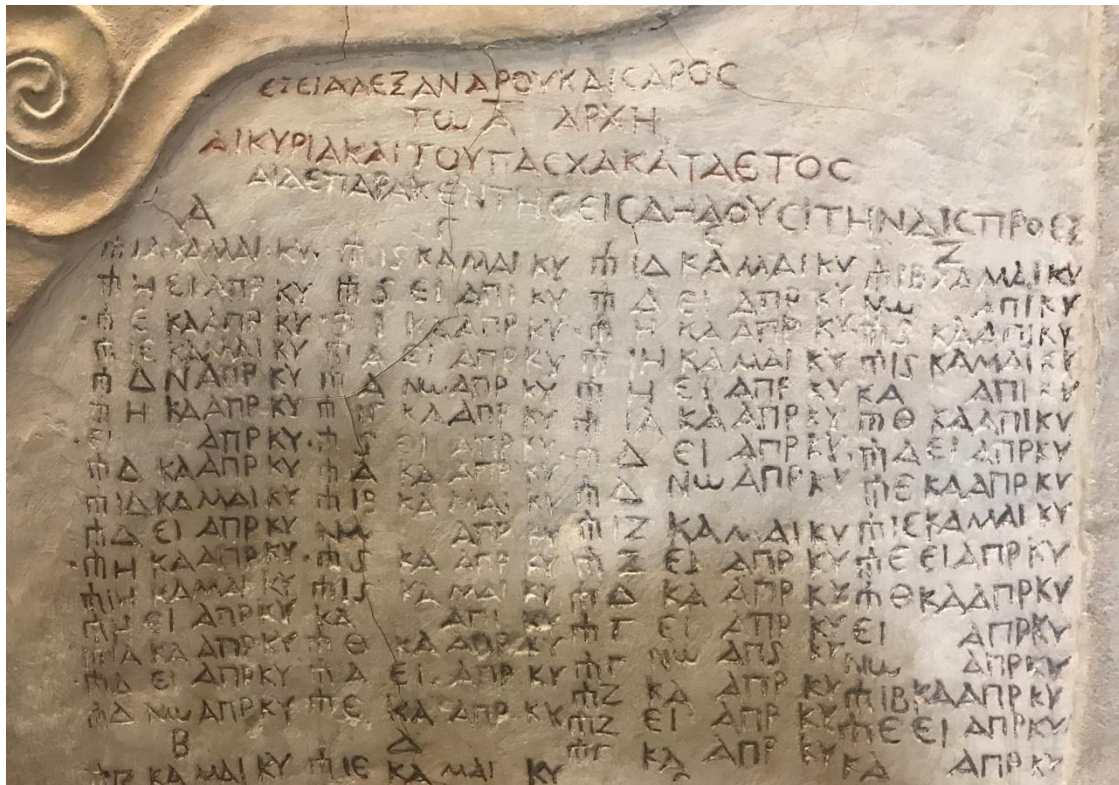 ΕΤΕΙ ΑΛΕΞΑΝΔΡΟΥ ΚΑΙCΑΡΟC
ΤΩ Α ΑΡΧΗ
ΑΙ ΚΥΡΙΑΚΑΙ ΤΟΥ ΠΑCΧΑ ΚΑΤΑ ΕΤΟC
ΑΙ ΔΕ ΠΑΡΑΚΕΝΤΗCΕΙC ΔΗΛΟΥCΙ ΤΗΝ ΔΙC ΠΡΟ ΕΞ
Α Γ Ε Ζ
Π ΙΑ ΚΑ ΜΑΙ ΚΥ Π ΙϚ ΚΑ ΜΑΙ ΚΥ Π ΙΔ ΚΑ ΜΑΙ ΚΥ Π ΙΒ ΚΑ ΜΑΙ ΚΥ
Π Η ΕΙ ΑΠΡ ΚΥ Π Ϛ ΕΙ ΑΠΙ ΚΥ Π Δ ΕΙ ΑΠΡ ΚΥ ΝΩ ΑΠΙ ΚΥ
Π Ε ΚΑ ΑΠΡ ΚΥ Π Ι ΚΑ ΑΠΡ ΚΥ Π Η ΚΑ ΑΠΡ ΚΥ Π Ϛ ΚΑ ΑΠΙ ΚΥ
Π ΙΕ ΚΑ ΜΑΙ ΚΥ Π Α ΕΙ ΑΠΡ ΚΥ Π ΙΗ ΚΑ ΜΑΙ ΚΥ Π ΙϚ ΚΑ ΜΑΙ ΚΥ
Π Δ Ν ΑΠΡ ΚΥ Π Δ ΝΩ ΑΠΡ ΚΥ Π Η ΕΙ ΑΠΡ ΚΥ ΚΑ ΑΠΙ ΚΥ
Π Η ΚΑ ΑΠΡ ΚΥ Π ΙΓ ΚΑ ΑΠΡ ΚΥ Π ΙΑ ΚΑ ΑΠΡ ΚΥ Π Θ ΚΑ ΑΠΙ ΚΥ
ΕΙ ΑΠΡ ΚΥ Π Ϛ ΕΙ ΑΠΡ ΚΥ Π Δ ΕΙ ΑΠΡ ΚΥ Π Α ΕΙ ΑΠΡ ΚΥ
Π Δ ΚΑ ΑΠΡ ΚΥ Π Α ΚΑ ΑΠΡ ΚΥ Π Δ ΝΩ ΑΠΡ ΚΥ Π Ε ΚΑ ΑΠΡ ΚΥ
Π ΙΔ ΚΑ ΜΑΙ ΚΥ Π ΙΒ ΚΑ ΜΑΙ ΚΥ Π ΙΖ ΚΑ ΜΑΙ ΚΥ Π ΙΕ ΚΑ ΜΑΙ ΚΥ
Π Δ ΕΙ ΑΠΡ ΚΥ ΝΩ ΑΠΡ ΚΥ Π Ζ ΕΙ ΑΠΡ ΚΥ Π Ε ΕΙ ΑΠΡ ΚΥ
Π Η ΚΑ ΑΠΡ ΚΥ Π Ϛ ΚΑ ΑΠΡ ΚΥ Π Δ ΚΑ ΑΠΡ ΚΥ Π Θ ΚΑ ΑΠΡ ΚΥ
Π ΙΗ ΚΑ ΜΑΙ ΚΥ Π ΙϚ ΚΑ ΜΑΙ ΚΥ Π Γ ΕΙ ΑΠΡ ΚΥ ΕΙ ΑΠΡ ΚΥ
Π Η ΕΙ ΑΠΡ ΚΥ ΚΑ ΑΠΙ ΚΥ Π Γ ΝΩ ΑΠϚ ΚΥ ΝΩ ΑΠΡ ΚΥ
Π ΙΑ ΚΑ ΑΠΡ ΚΥ Π Θ ΚΑ ΑΠΡ ΚΥ Π Ζ ΚΑ ΑΠΡ ΚΥ Π ΙΒ ΚΑ ΑΠΡ ΚΥ
Π Δ ΕΙ ΑΠΡ ΚΥ Π Α ΕΙ ΑΠΡ ΚΥ Π Ζ ΕΙ ΑΠΡ ΚΥ Π Ε ΕΙ ΑΠΡ ΚΥ
Π Δ ΝΩ ΑΠΡ ΚΥ Π Ε ΚΑ ΑΠΡ ΚΥ Π Γ ΚΑ ΑΠΡ ΚΥ ΚΑ ΑΠΡ ΚΥ
Β Δ
ΚΑ ΜΑΙ ΚΥ Π ΙΕ ΚΑ ΜΑΙ ΚΥ